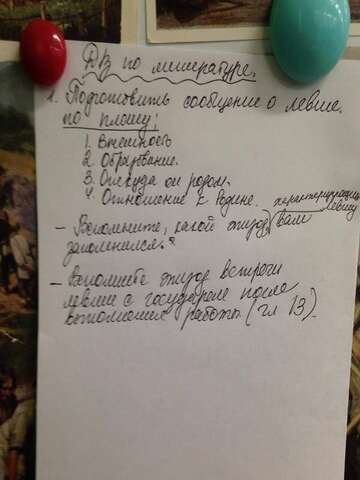 Дз по литературе.
1. Подготовить сообщение о левше.
по плану:
1. Внешность
2. Образование.
3. Откуда он родом.
4. Отношение к Родине.
характеризующий
левшу
- Вспомните, какой эпизод вам
запомнился?
- Вспомните эпизод встречи
левши с государем после
выполнения работы (гл 13).